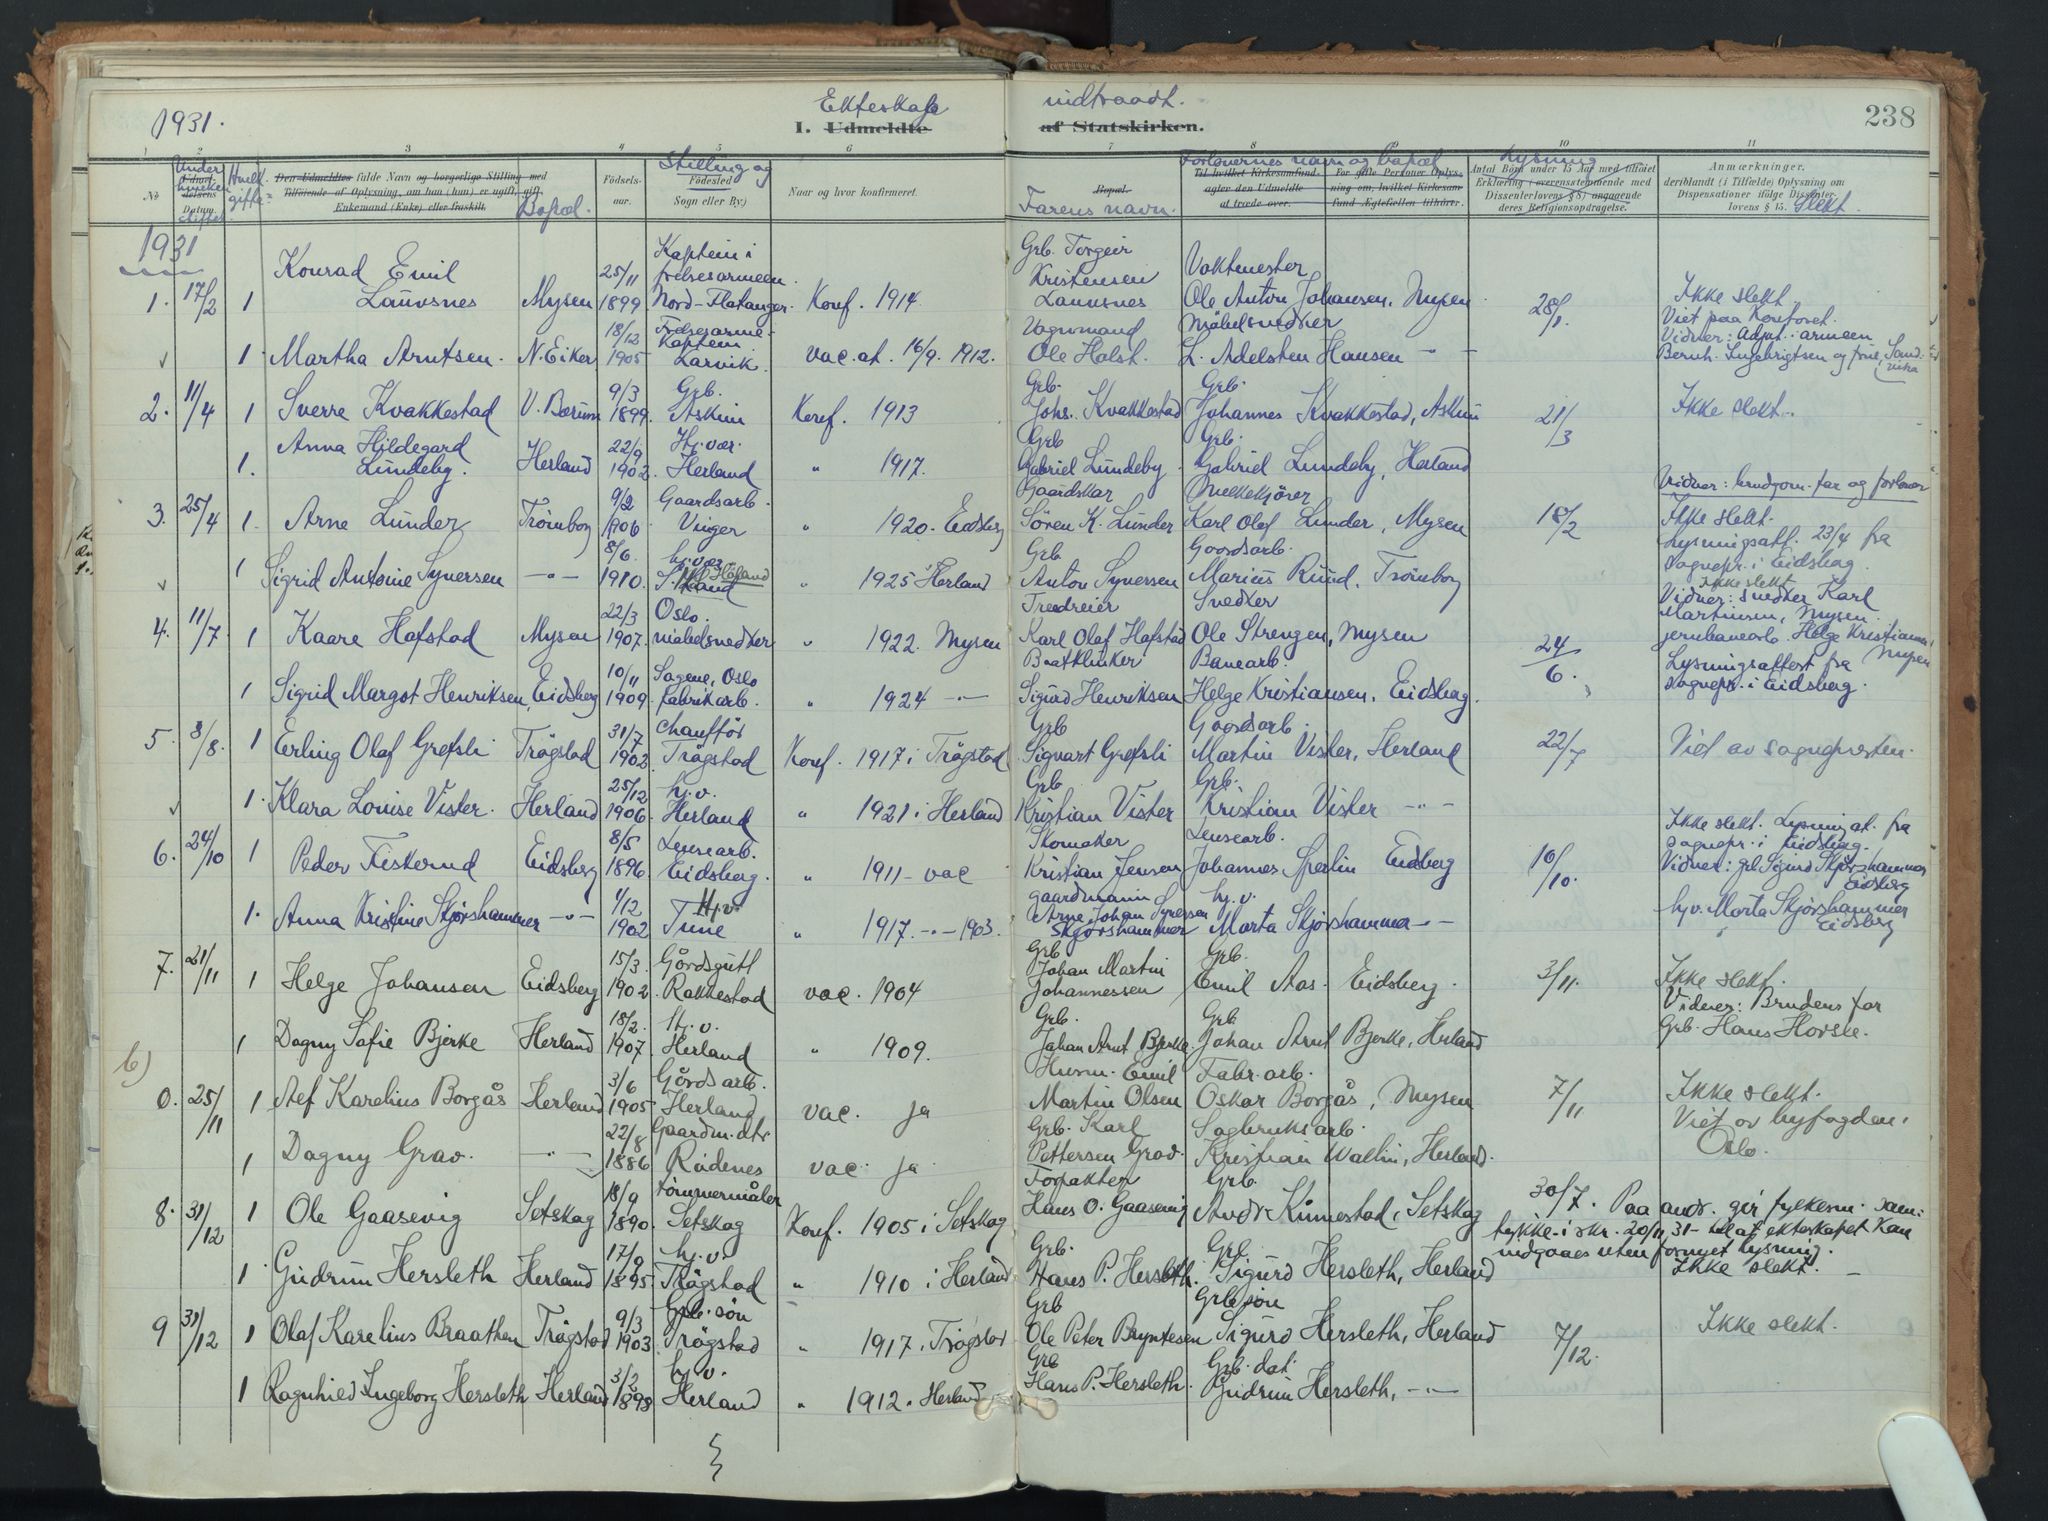 1931.
Ekteskap indtraadt.
I. Udmeldte af Statskirken.
238
1 2 3 4 5 6 7 8 9 10 11
No. Under Udmeldelsens Datum
Hvilk. gifte
Den Udmeldtes fulde Navn og borgerlige Stilling med
Tilføiende af Oplysning, om han (hun) er ugift, gift,
Enkemand (Enke) eller fraskilt.
Bopæl.
Fødselsaar.
Stilling og
Fødested
Sogn eller By.)
Naar og hvor konfirmeret.
Bopæl.
Farens navn.
Forlovernes navn og bopæl
Til hvilket Kirkesamfund
agter den Udmeldte
at træde over.
For gifte Personer Oplysning
om, hvilket Kirkesamfund
Ægtefællen tilhører.
Lysning
Antal Børn under 15 Aar med tilføiet
Erklæring i overensstemmende med
Dissenterlovens § 8 angaaende
deres Religionsopdragelse.
Anmærkninger.
deriblandt (i Tilfælde) Oplysning om
Dispensationer ifølge Dissenterlovens § 15.
Slekt.
1931
1. 17/2 1 Konrad Emil Lauvsnes Mysen 25/11 1899 Kaptein i frelsesarmeen. Nord-Flatanger. Konf. 1914. Grb. Torgeir Kristensen Lauvsnes Vaktmester Ole Anton Johansen, Mysen 28/1. Ikke slekt. Viet paa Kontoret.
1. Martha Arntsen. N. Eiker 18/12 1905 Frelsesarme-Kaptein Larvik. vac. at. 16/9. 1912. Vognmand Ole Holst. Møbelsnedker L. Adelsten Hansen -"- Vidner: Adjut. i armeen Bernh. Ingebrigtsen og frue, Sandvika
2. 11/4 1 Sverre Kvakkestad V. Bærum 9/3 1899. Grb. Askim Konf. 1913 Grb. Johs. Kvakkestad Grb. Johannes Kvakkestad, Askim 21/3 Ikke slekt.
1. Anna Hildegard Lundeby. Herland 22/9 1902. Hj. vær. Herland " 1917. Grb Gabriel Lundeby. Grb. Gabriel Lundeby, Herland
Vidner: brudgom. far og forlover
3. 25/4 1. Arne Lunder Trømborg 9/2 1906 Gaardsarb. Vinger " 1920. Eidsberg Gaardskar Søren K. Lunder Melkekjører Karl Olaf Lunder, Mysen 18/2 Ikke slekt. Lysningsatt. 23/4 fra sognepr. i Eidsberg.
1 Sigrid Antonie Syversen -"- 8/6. 1910. hj. vær Høland " 1925 Herland Grb Anton Syversen Gaardsarb. Marius Ruud, Trømborg
4. 11/7. 1 Kaare Hafstad Mysen 22/3 1907. Oslo. møbelsnedker " 1922. Mysen Karl Olaf Hafstad Snedker Ole Strengen, Mysen 24/6. Ikke slekt Vidner: snedker Karl Martinsen, Mysen. jernbanearb. Helge Kristiansen, Mysen
1 Sigrid Margot Henriksen, Eidsberg 10/11 1909. Sagene, Oslo fabrikarb. " 1924 -"- Sigurd Henriksen Banearb. Helge Kristiansen, Eidsberg. Lysningsattest fra sognepr. i Eidsberg.
5. 8/8. 1 Erling Olaf Grefsli Trøgstad 31/7 1902. Chauffør Trøgstad Konf. 1917 i Trøgstad Grb Sigvart Grefsli Gaardsarb. Martin Vister, Herland 22/7 Vid av sognepresten.
1. Klara Louise Vister. Herland 25/12 1906. hj. v. Herland " 1921 i Herland Grb Kristian Vister Grb. Kristian Vister -"-
6. 24/10 1 Peder Fiskerud Eidsberg 8/5 1896. Lensearb. Eidsberg. " 1911 - vac Skomaker Kristian Jensen Lensearb. Johannes Sperlin Eidsberg 10/10. Ikke slekt. Lysningat. fra sognepr. i Eidsberg. Vidner: grb. Sigurd Skjørshammer Eidsberg
1. Anna Kristine Skjørshammer -"- 1/12 1902 Hj. v. Tune " 1917. -"- 1903. gaardmann Arne Johan Syversen Skjørshammer hj. v. Marta Skjørshammer -"- hj. v. Marta Skjørshammer Eidsberg
7. 21/11 1 Helge Johansen Eidsberg 15/3. 1902. Gårdsgutt Rakkestad vac. 1904 Grb Johan Martin Johannessen Grb. Emil Aas. Eidsberg. 3/11. Ikke slekt. Vidner: Brudens far Grb. Hans Horsle.
1 Dagny Sofie Bjerke Herland 18/2. 1907. Hj. v. Herland " 1909. Grb. Johan Arnt Bjerke. Grb Johan Arnt Bjerke, Herland
b)
0. 25/11 1 Alf Karelius Borgås Herland 3/6 1905 Gårdsarb. Herland vac. ja Husm. Emil Martin Olsen Fabr. arb. Oskar Borgås, Mysen 7/11 Ikke slekt. Viet av byfogden, Oslo.
1 Dagny Grav. -"- 22/8 1886 Gaardm. dtr. Rødenes vac. ja Grb. Karl Pettersen Grav. Sagbruksarb. Kristian Wallin, Herland.
8. 31/12 1 Ole Gaasevig Setskog 18/9 1890. tømmermåler Setskog Konf. 1905 i Setskog Forpakter Hans O. Gaasevig Grb. Andr. Kinnestad, Setskog 30/7. Paa andr. gir fylkesm. samtykke i skr. 20/11 31 til at ekteskapet kan indgaaes uten fornyet lysning.
1. Gudrun Hersleth Herland 17/9 1895 hj. v. Trøgstad " 1910 i Herland Grb. Hans P. Hersleth. Grb. Sigurd Hersleth, Herland Ikke slekt.
9 31/12 1 Olaf Karelius Braathen Trøgstad 9/3 1903. Grb. søn Trøgstad " 1917, Trøgstad Grb Ole Peter Bryntesen Grb søn Sigurd Hersleth, Herland 7/12. Ikke slekt.
1 Ragnhild Ingeborg Hersleth Herland 3/2 1898 hj. v. Herland " 1912. Herland Grb Hans P. Hersleth. Grb. dat. Gudrun Hersleth, -"-